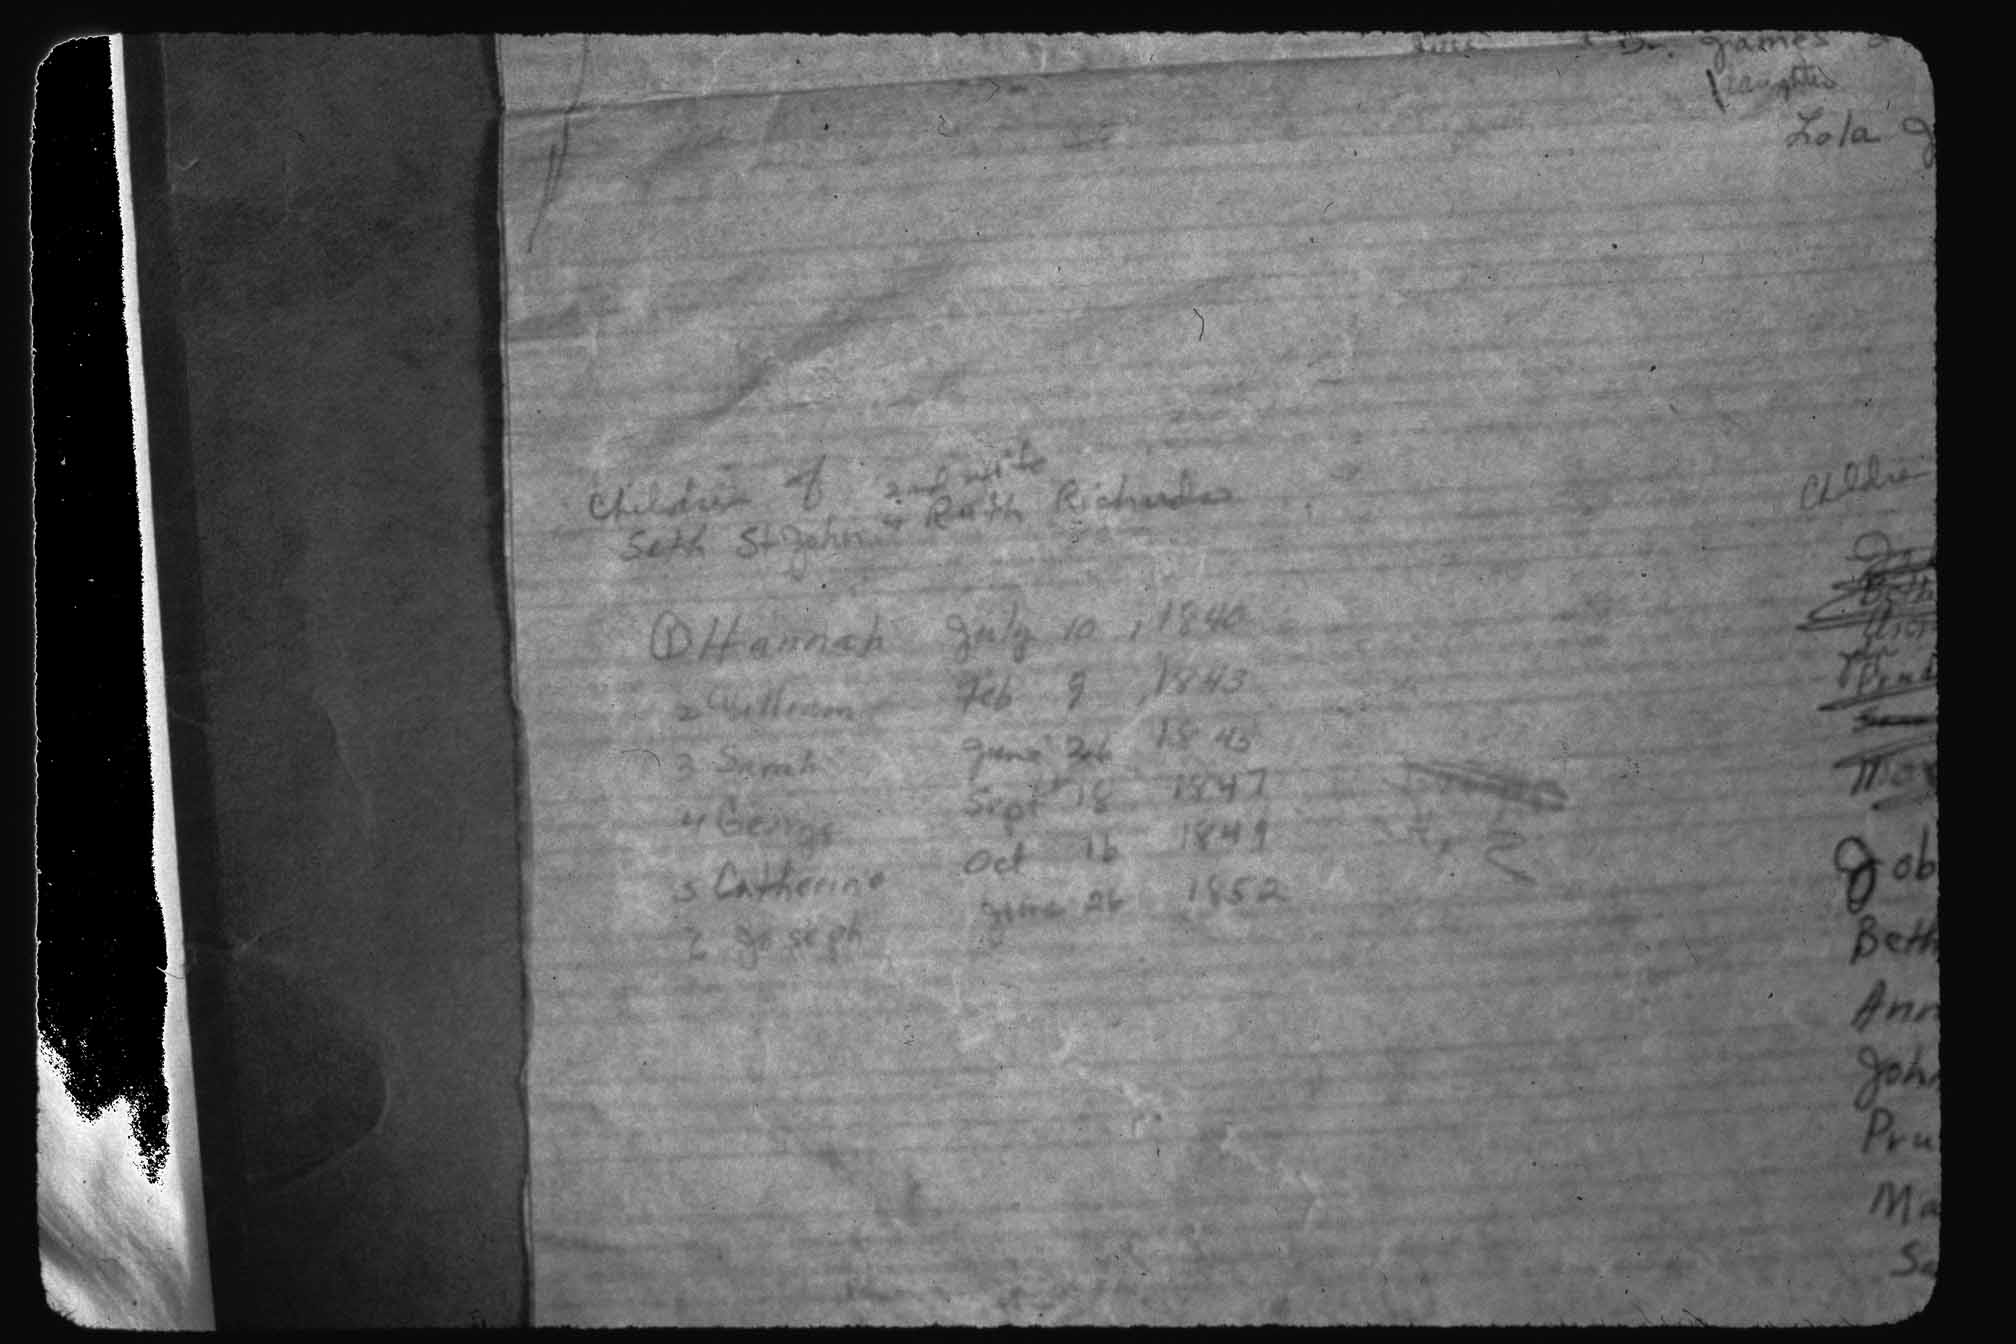 Dr. James
daughter
Lola J
Children of 2nd wife
Seth St John & Ruth Richards
① Hannah July 10, 1840
2 William Feb 9, 1843
3 Sarah June 26 1845
4 George Sept 18 1847
5 Catherine Oct 16 1849
6 Joseph June 26 1852
Children
Job
Beth
Ann
John
Pru
Ma
Sa